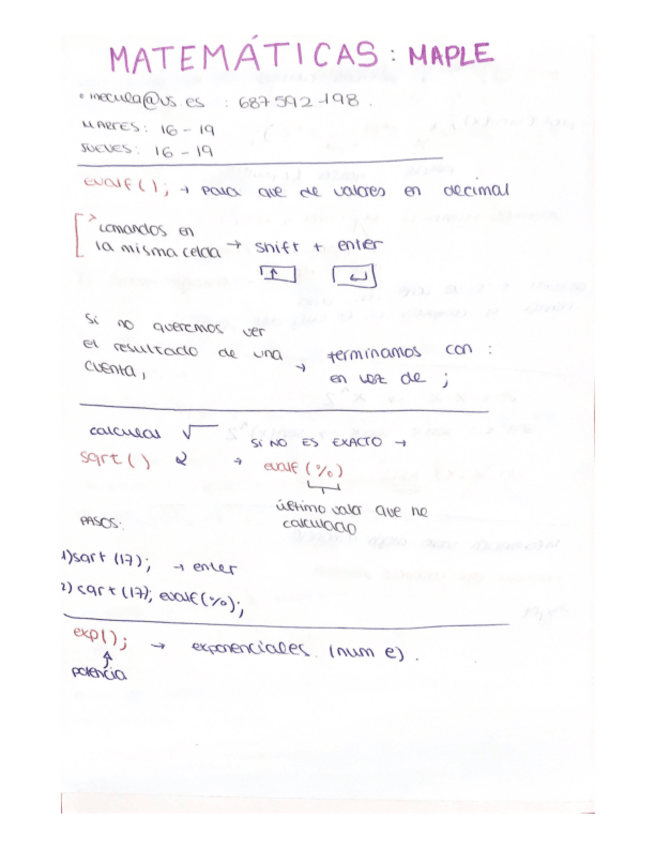 MATEMÁTICAS : MAPLE
mecula@us.es : 687592198.
MARTES: 16 - 19
JUEVES: 16 - 19
evalf ( ); → para que de valores en decimal
[> comandos en
la misma celda → shift + enter
↑ ↵
Si no queremos ver
el resultado de una → terminamos con :
cuenta, en vez de ;
calcular √
SI NO ES EXACTO →
sqrt ( ) → evalf (%)
último valor que he
calculado
PASOS:
1) sqrt (17); → enter
2) sqrt (17); evalf (%);
exp( ); → exponenciales. (num e).
↑
potencia